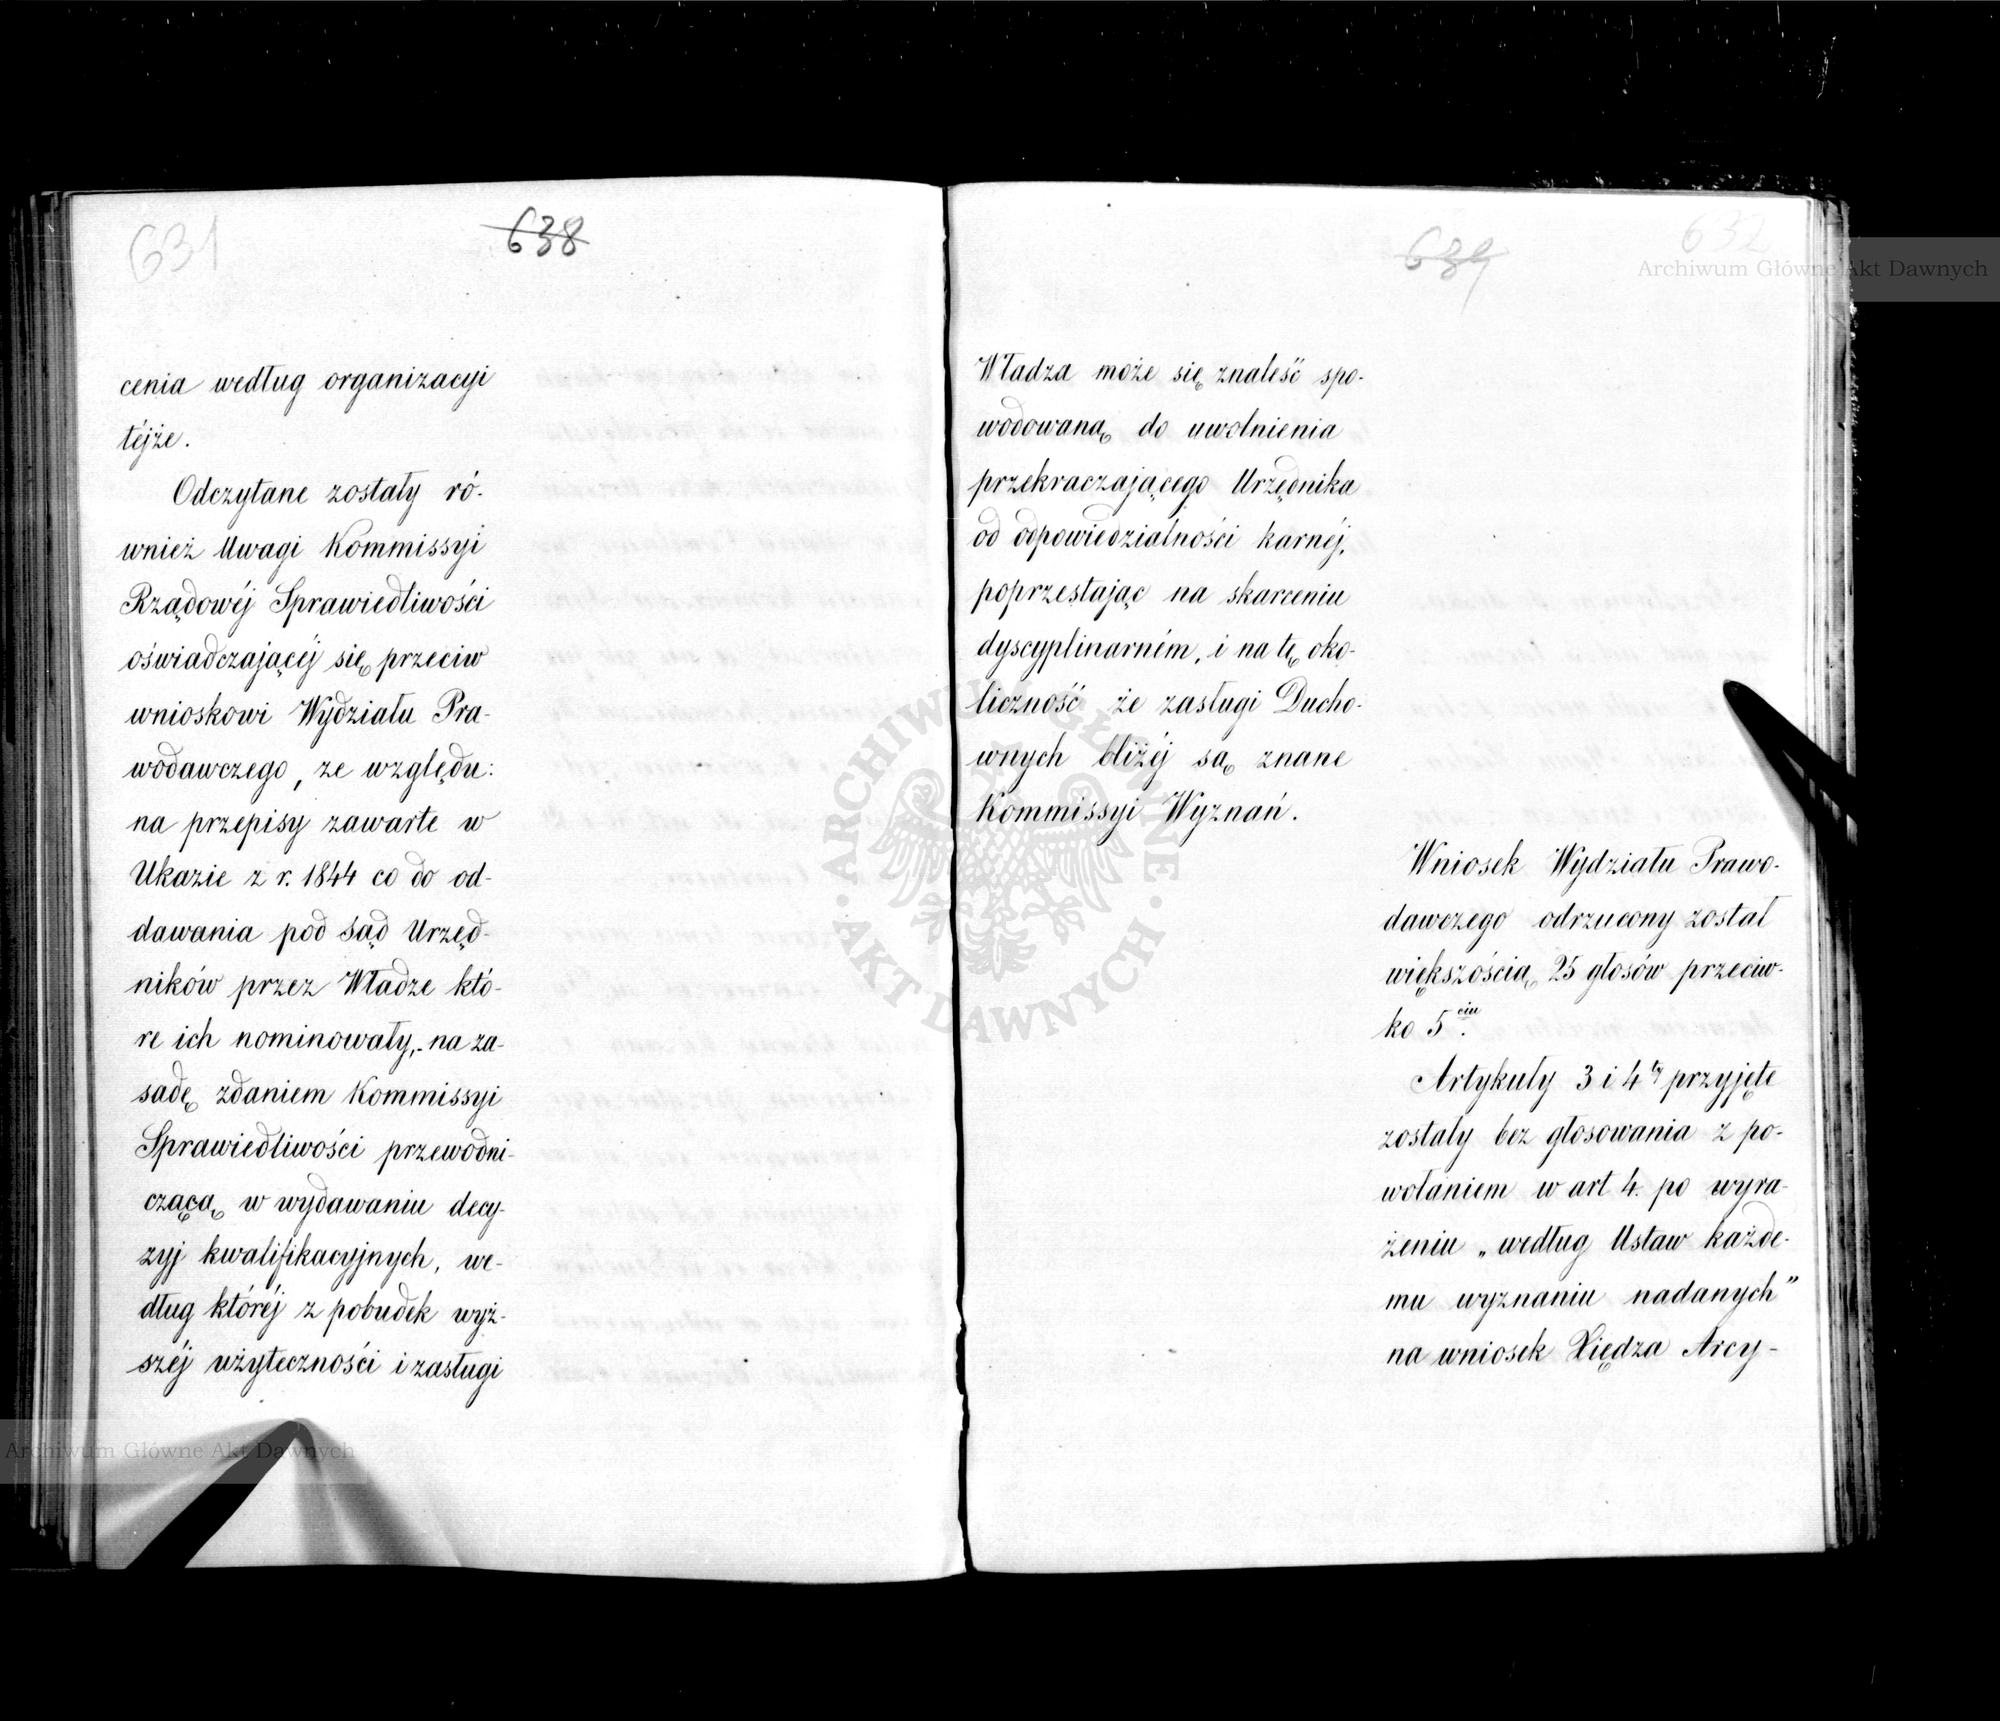 631
638
cenia według organizacyi
téjże.
Odczytane zostały ró-
wnież Uwagi Kommissyi
Rządowéj Sprawiedliwości
oświadczającéj się przeciw
wnioskowi Wydziału Pra-
wodawczego, ze względu:
na przepisy zawarte w
Ukazie z r. 1844 co do od-
dawania pod sąd Urzęd-
ników przez Władze któ-
re ich nominowały,- na za-
sadę zdaniem Kommissyi
Sprawiedliwości przewodni-
czącą w wydawaniu decy-
zyj kwalifikacyjnych, we-
dług któréj z pobudek wyż-
széj użyteczności i zasługi
639
632
Władza może się znaleść spo-
wodowaną do uwolnienia
przekraczającego Urzędnika
od odpowiedzialności karnéj,
poprzestając na skarceniu
dyscyplinarném, i na tę oko-
liczność że zasługi Ducho-
wnych bliżéj są znane
Kommissyi Wyznań.
Wniosek Wydziału Prawo-
dawczego odrzucony został
większością 25 głosów przeciw-
ko 5ciu.
Artykuły 3 i 4ty przyjęte
zostały bez głosowania z po-
wołaniem w art 4. po wyra-
żeniu „według Ustaw każde-
mu wyznaniu nadanych”
na wniosek Xiędza Arcy-
Archiwum Główne Akt Dawnych
Archiwum Główne Akt Dawnych
ARCHIWUM GŁÓWNE AKT DAWNYCH